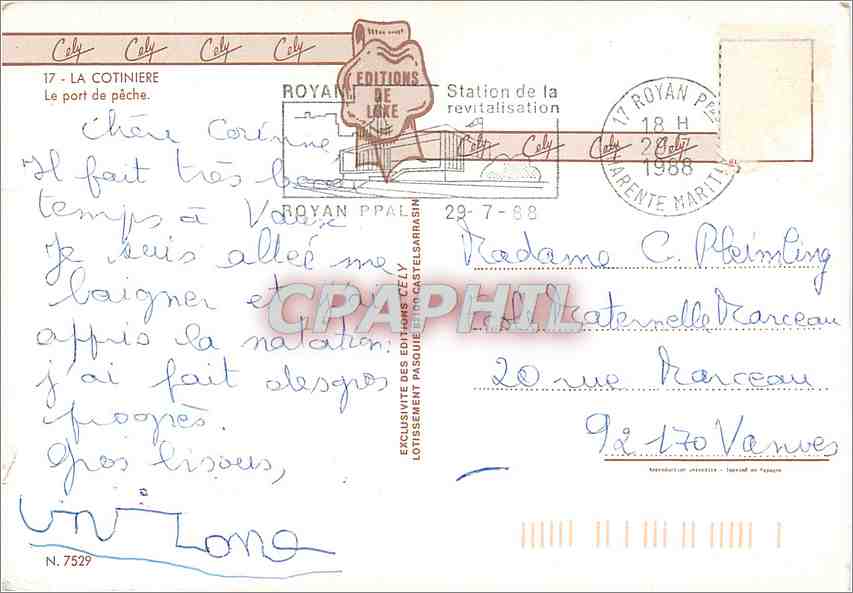 Cely Cely Cely Cely
17 - LA COTINIERE
Le port de pêche.
EDITIONS
DE
LUXE
ROYAN
Station de la
revitalisation
ROYAN PPAL
29-7-88
17 ROYAN PPAL
18 H
1988
CHARENTE MARITIME
Cely Cely Cely Cely
Chère Corinne
Il fait très beau
temps à Vaux
Je suis allée me
baigner et j'ai
appris la natation:
j'ai fait des gros
progrès.
Gros bisous,
N. 7529
EXCLUSIVITE DES EDITIONS CELY
LOTISSEMENT PASQUIE CASTELSARRASIN
CPAPHIL
Madame C. Pleimling
Maternelle Marceau
20 rue Marceau
92 170 Vanves
Reproduction interdite - Imprimé en Espagne